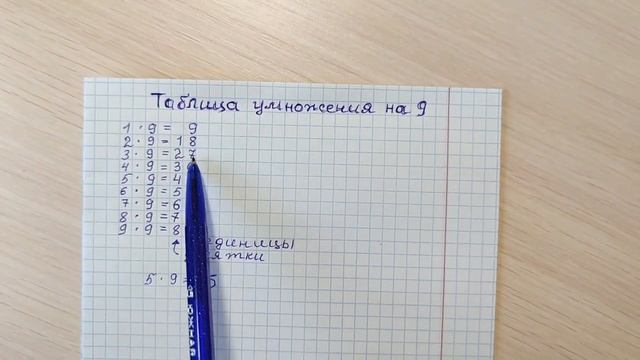 Таблица умножения на 9
1 · 9 = 9
2 · 9 = 18
3 · 9 = 27
4 · 9 = 3
5 · 9 = 4
6 · 9 = 5
7 · 9 = 6
8 · 9 = 7
9 · 9 = 8
5 · 9 = 5